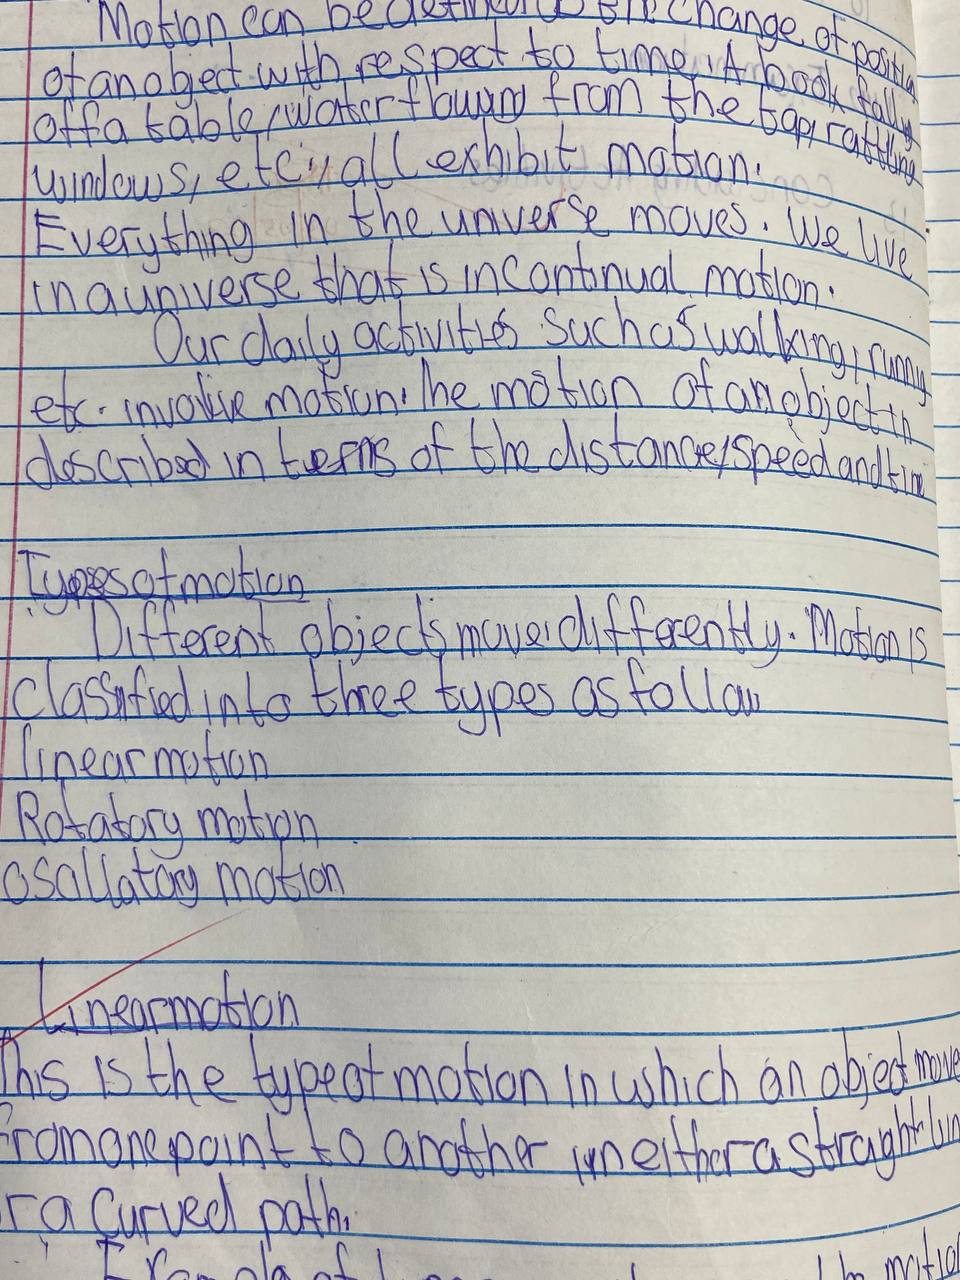 Motion can be defined as the change of position
of an object with respect to time. A book falling
off a table, water flowing from the tap, rattling
windows, etc., all exhibit motion.
Everything in the universe moves. We live
in a universe that is in continual motion.
Our daily activities such as walking, runng
etc. involve motion. The motion of an object in
described in terms of the distance, speed and time
Types of motion
Different objects move differently. Motion is
Classified into three types as follow
linear motion
Rotatory motion
osallatory motion
Linear motion
This is the type of motion in which an object move
from one point to another in either a straght lin
r a Curved path.